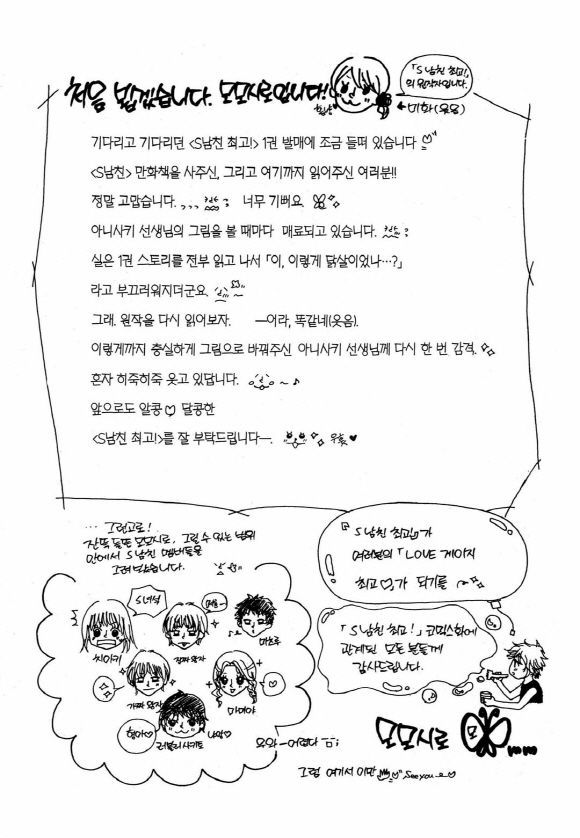 처음 뵙겠습니다. 모모시로입니다!
「S남친 최고!」
의 원작자입니다.
←미화(웃음)
기다리고 기다리던 <S남친 최고!> 1권 발매에 조금 들떠 있습니다
<S남친> 만화책을 사주신, 그리고 여기까지 읽어주신 여러분!!
정말 고맙습니다. 너무 기뻐요.
아니사키 선생님의 그림을 볼 때마다 매료되고 있습니다.
실은 1권 스토리를 전부 읽고 나서 「이, 이렇게 닭살이었나…?」
라고 부끄러워지더군요.
그래. 원작을 다시 읽어보자. ―어라, 똑같네(웃음).
이렇게까지 충실하게 그림으로 바꿔주신 아니사키 선생님께 다시 한 번 감격.
혼자 히죽히죽 웃고 있답니다. ~♪
앞으로도 알콩♡달콩한
<S남친 최고!>를 잘 부탁드립니다―. 우훗♥
… 그런고로!
잔뜩 들뜬 모모시로, 그릴 수 있는 범위
안에서 S남친 멤버들을
그려봤습니다.
S녀석
씨이키
진짜 왕자
마츠루
가짜 왕자
마미야
형아♡
러블리 사키토
나악♡
『S남친 최고!』가
여러분의 「LOVE 게이지
최고♡가 되기를
「S남친 최고!」 코믹스화에
관계된 모든 분들께
감사드립니다.
모모시로
우와―어렵다
그럼 여기서 이만 See you